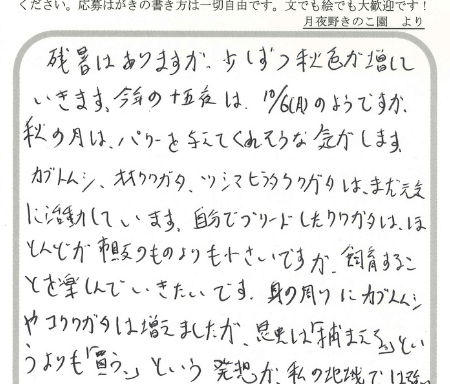 ください。応募はがきの書き方は一切自由です。文でも絵でも大歓迎です！
月夜野きのこ園　より
残暑はありますが、少しずつ秋色が増して
いきます。今年の十五夜は、10/6(月)のようですが、
秋の月は、パワーを与えてくれそうな気がします。
カブトムシ、オオクワガタ、ツシマヒラタクワガタは、まだ元気
に活動しています。自分でブリードしたクワガタは、ほ
とんどが市販のものよりも小さいですが、飼育するこ
とを楽しんでいきたいです。身の周りにカブトムシ
やコクワガタは増えましたが、昆虫は「捕まえる」とい
うよりも「買う。」という発想が、私の地域では